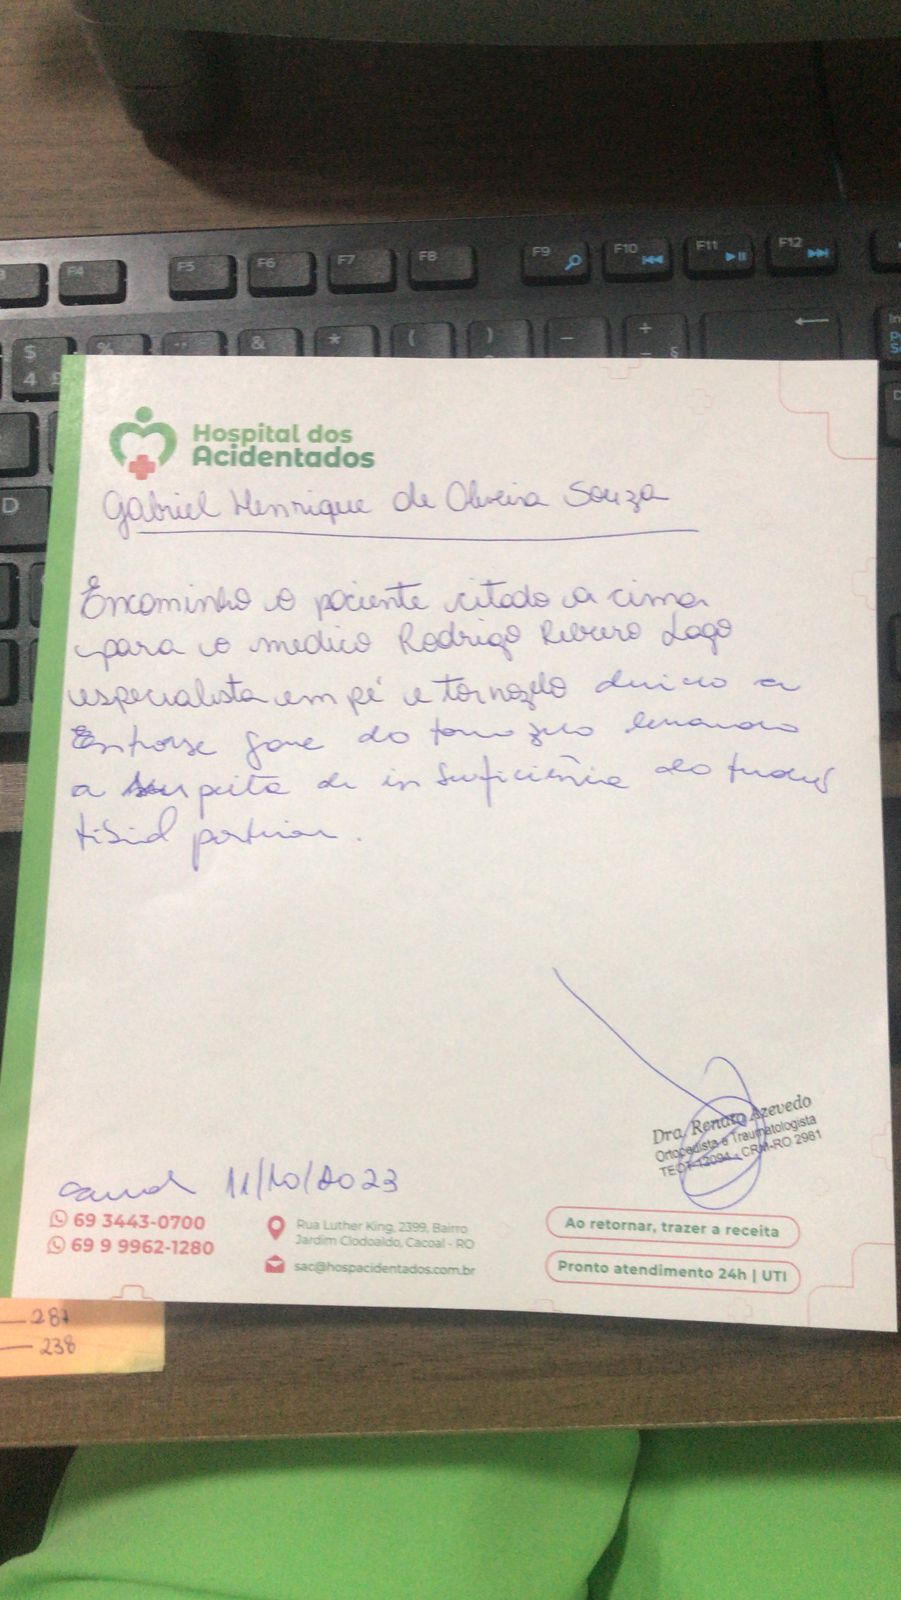 F4 F5 F6 F7 F8 F9 F10 F11 F12
$ % & * ( ) - +
4 § In
D
Hospital dos
Acidentados
Gabriel Henrique de Oliveira Souza
Encaminho o paciente citado a cima
para o medico Rodrigo Ribeiro Lago
especialista em pé e tornozelo devido a
Entorse grave do tornozelo levando
a suspeita de insuficiência do tendão
tibial posterior.
Dra. Renata Azevedo
Ortopedista e Traumatologista
TEOT 12094 - CRM-RO 2981
Cacoal 11/10/2023
69 3443-0700
69 9 9962-1280
Rua Luther King, 2399, Bairro
Jardim Clodoaldo, Cacoal - RO
sac@hospacidentados.com.br
Ao retornar, trazer a receita
Pronto atendimento 24h | UTI
287
238